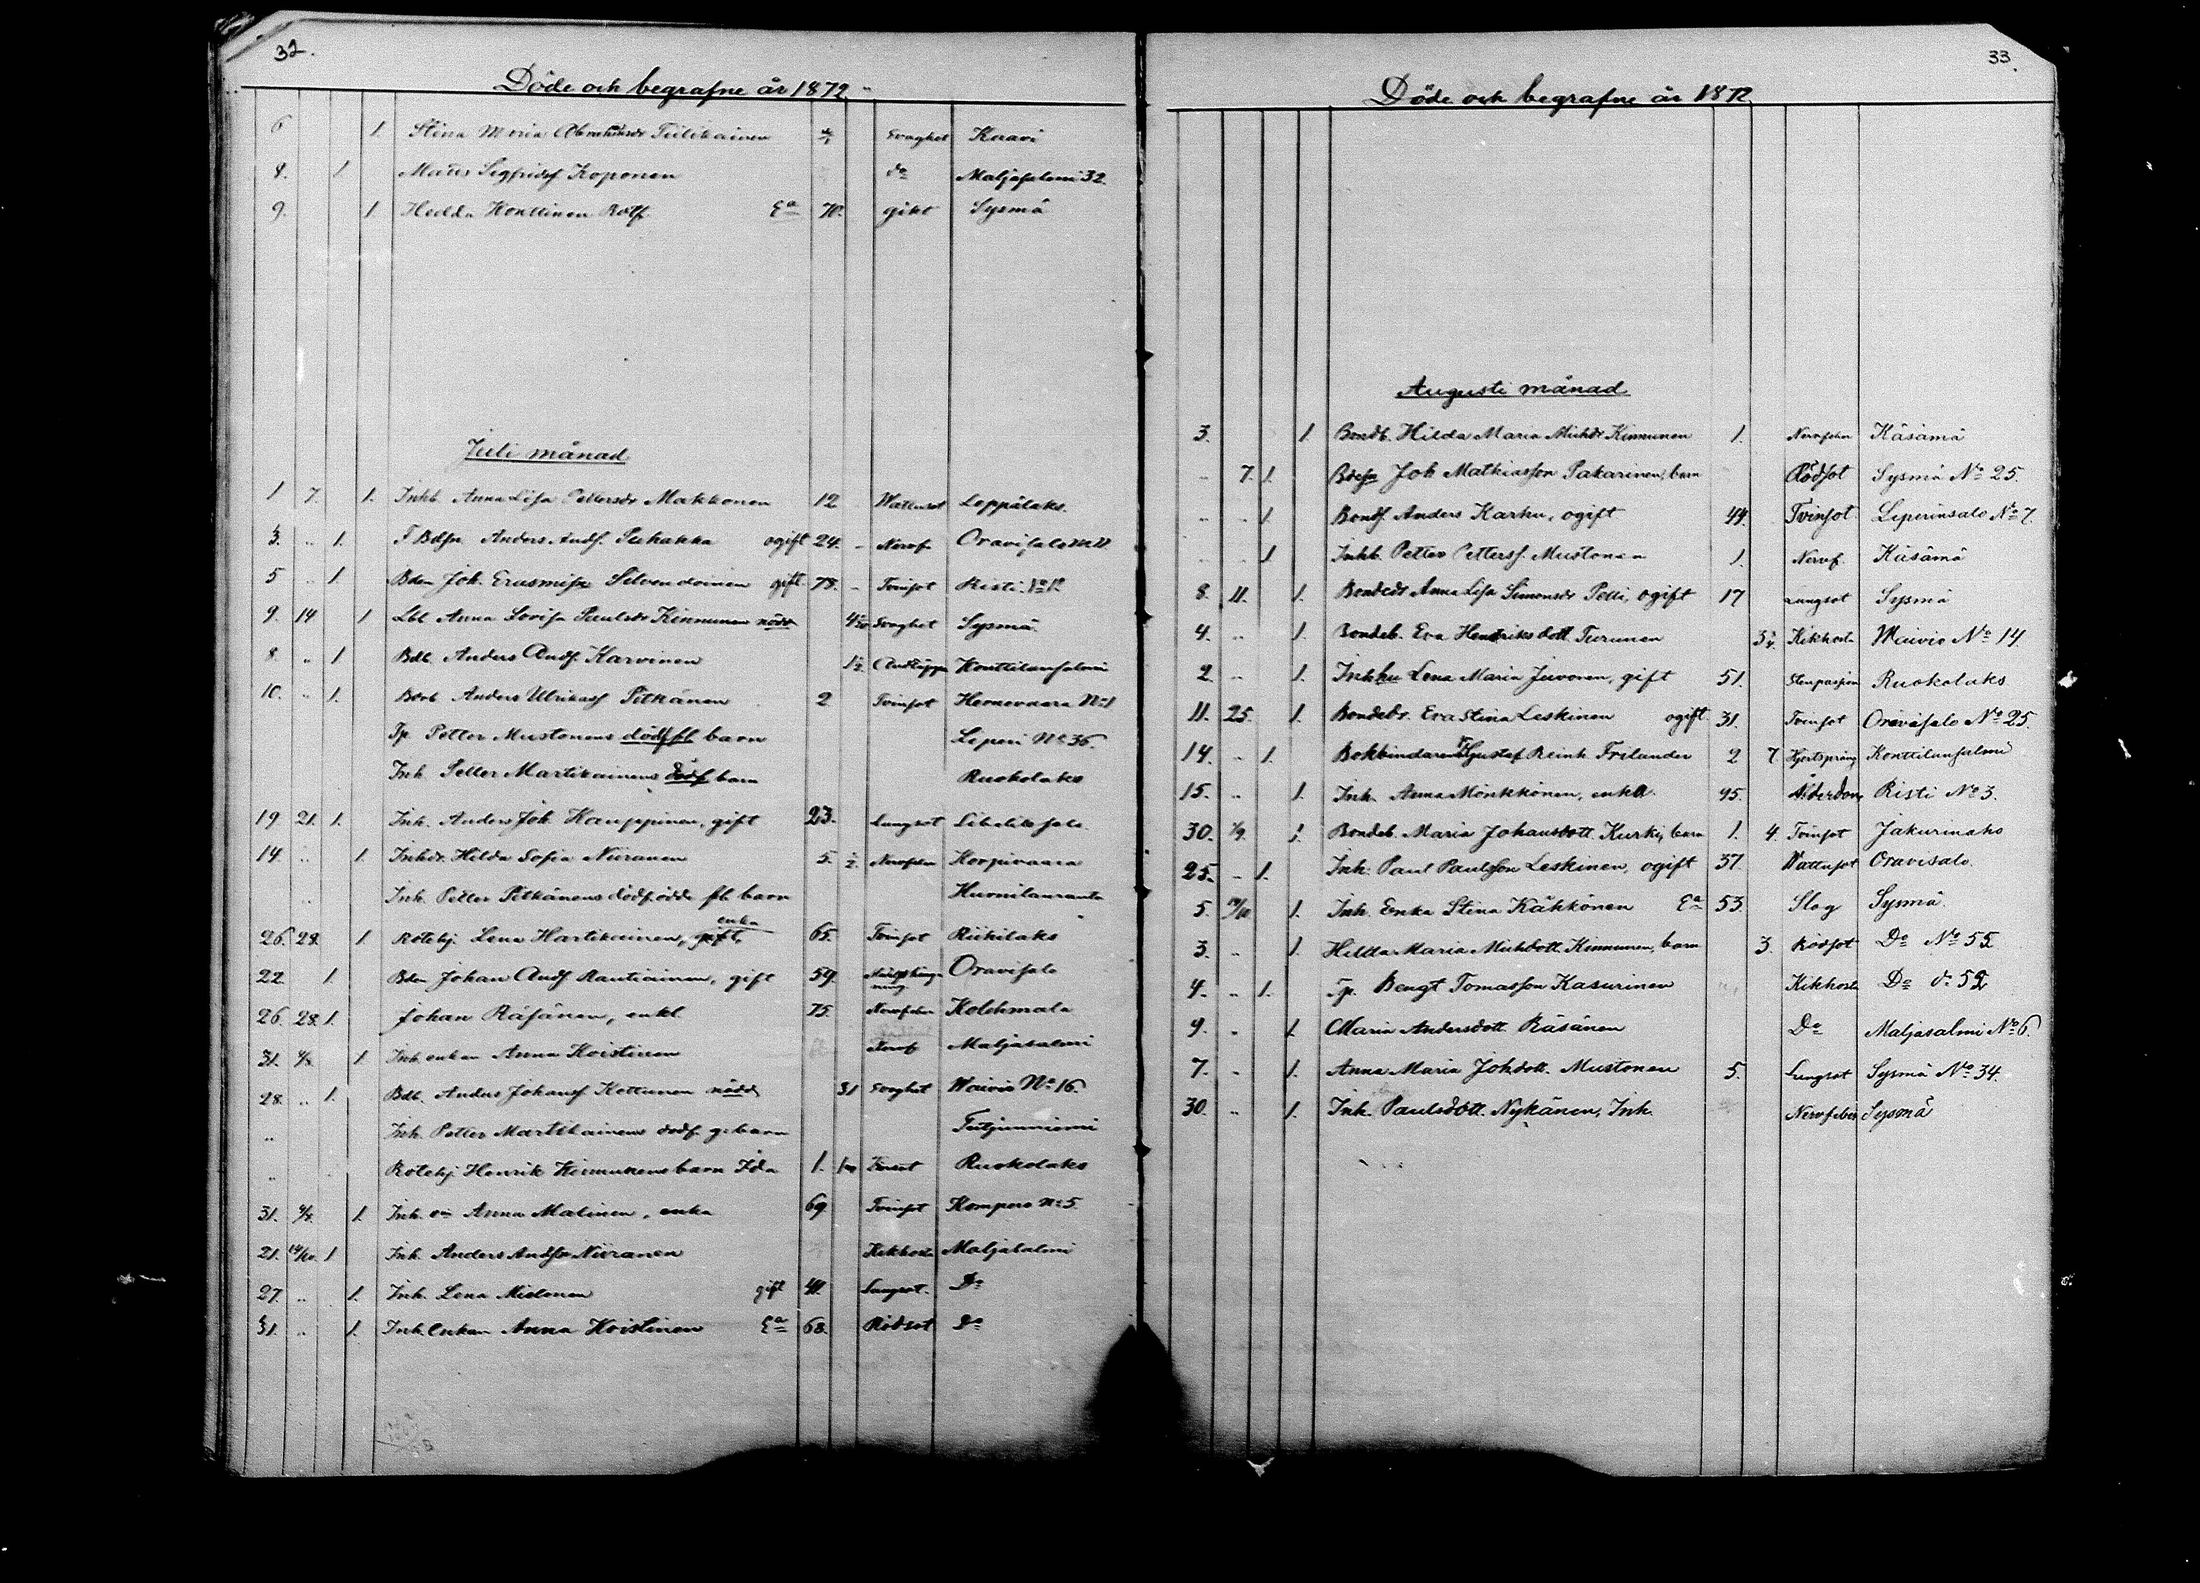 32.
Döde och begrafne år 1872
6 1. Stina Maria Tiilikainen Svaghet Kaavi
8. 1 Matts Sigfridsf Koponen do Maljasalmi 32.
9. 1. Hedda Honttinen Rotf Ea 70. gikt Sysmä
Juli månad
1 7. 1. Inhb Anna Lisa Pettersdr Makkonen 12 Wattusot Leppälaks.
3. .. 1. Bdsn Anders Andf. Puhakka ogift 24. Nervf. Oravisalo
5 .. 1 Bden Joh. Erasmisn Silvendoinen gift 78. Tvinsot Risti No 12
9. 14 1 Lbl Anna Lovisa Paulsdr Kinnunen nödd Svaghet Sysmä.
8. .. 1 Bdb. Anders Andf. Karvinen 1½ Andtäppa Konttilansalmi
10. .. 1. Bdrb Anders Ulrikasf Pitkänen 2 Tvinsot Hernevaara No 1
Tp. Petter Mustonens dödf fl barn Liperi No 36.
Inh. Petter Martikainens dödf barn Ruokolaks
19 21. 1. Inh. Anders Joh. Kauppinen, gift 23. Lungsot
14. .. 1. Inhdr. Hilda Sofia Niiranen 5. ½ Nervfeber Korpivaara
.. Inh. Petter Pitkänens dödfödde fl. barn
enka
26. 28. 1 Rotehj. Lena Hartikainen, gift, 65. Tvinsot Riihilaks
22. 1. Bden Johan Andf Rautiainen, gift 59. Oravisalo
26. 28. 1. Johan Räsänen, enkl. 75. Nervfeber Kolehmala
31. 4/8 1 Inh. enkan Anna Koistinen Nervf Maljasalmi
28. .. 1. Bdb. Anders Johansf Kettunen nödd 31 Svaghet Waivio No 16.
.. Inh. Petter Martikainens dödf. g. barn Tutjunniemi
.. Rotehj Henrik Kinnunens barn Ida 1. Ruokolaks
31. 4/8. 1. Inh. Anna Malinen, enka 69 Tvinsot Kompero No 5.
21. 14/10. 1 Inh. Anders Andsn Niiranen Kikhosta Maljasalmi
27. .. 1. Inh. Lena Mielonen gift 41. Lungsot. Do
31. .. 1. Inh. Enkan Anna Koistinen Ea 68. Rödsot Do
33.
Döde och begrafne år 1872
Augusti månad
3. 1 Bondb. Hilda Maria Michdr Kinnunen 1. Nervfeber Käsämä
.. 7. 1. Bdesn Joh Mathiasson Pakarinen, barn Rödsot Sysmä No 25.
.. .. 1. Bondf. Anders Karhu, ogift 44. Tvinsot Liperinsalo No 7.
.. .. 1 Inhb. Petter Pettersf. Mustonen 1. Nervf. Käsämä
8. 11. 1. Bondedr Anna Lisa Simonsdr Pelli, ogift 17 Lungsot Sysmä
4. .. 1. Bondeb. Eva Henriksdott Turunen Kikhosta Waivio No 14.
2 .. 1. Inhhu Lena Maria Juvonen, gift 51. Stenpasjon Ruokolaks
11. 25. 1. Bondedr. Eva Stina Leskinen ogift 31. Tvinsot Oravisalo No 25.
14. .. 1. Bokbindaren Gustaf Reinh Frilander 2 7. Hjertspräng Konttilansalmi
15. .. 1. Inh. Anna Mönkkönen, enka. 95. Ålderdom Risti No 3.
30. 1/9. 1. Bondeb. Maria Johansdott Kurki, barn 1. 4. Tvinsot Jakurinaho
25. .. 1. Inh. Paul Paulsson Leskinen, ogift 37. Wattusot Oravisalo.
5. 14/10 1. Inh. Enka Stina Käkkönen Ea 53. Slag Sysmä.
3. .. 1. Hilda Maria Michdott. Kinnunen, barn 3. Rödsot Do No 55
4. .. 1. Tp. Bengt Tomasson Kasurinen Kikhosta Do do 52
9. .. 1. Maria Andersdott Räsänen Do Maljasalmi No 6.
7. .. 1. Anna Maria Johdott. Mustonen 5. Lungsot Sysmä No 34.
30. .. 1. Inh. Paulsdott. Nykänen, Inh. Nervfeber Sysmä